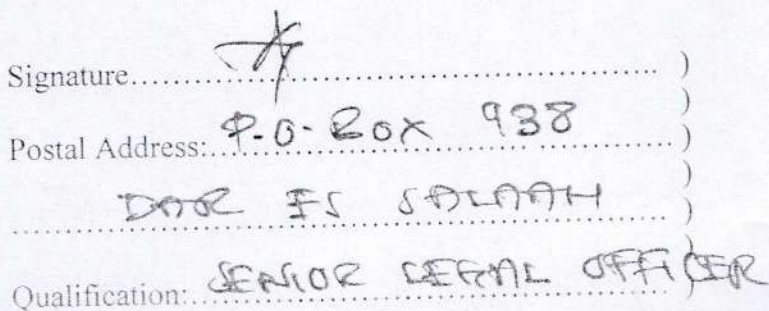 Signature........................................................ )
)
Postal Address: P.O. BOX 938 )
)
DAR ES SALAAM )
)
Qualification: SENIOR LEGAL OFFICER